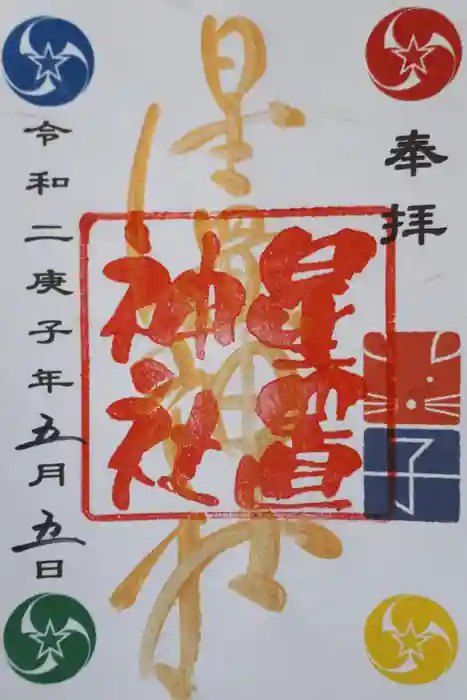 奉拝
星置神社
星置神社
子
令和二庚子年五月五日